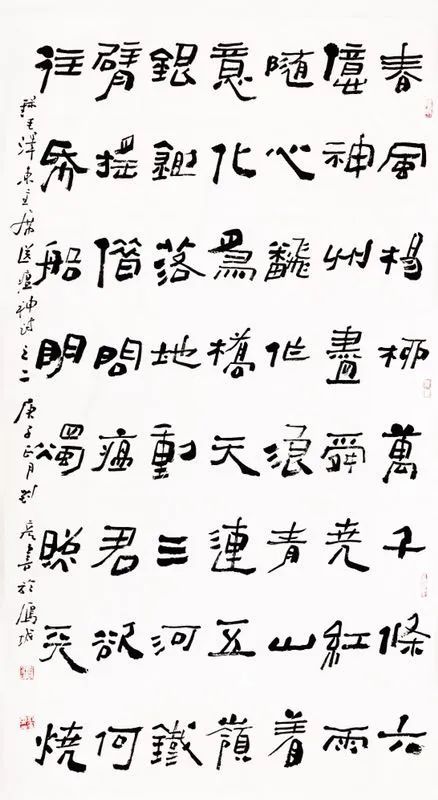 春風楊柳萬千條六
億神州盡舜尭紅雨
隨心飜作浪青山着
意化爲橋天連五嶺
銀鋤落地動三河鐵
臂摇借問瘟君欲何
往帋船明燭照天燒
錄毛澤東主席送瘟神詩之二 庚子正月 書於鴈城